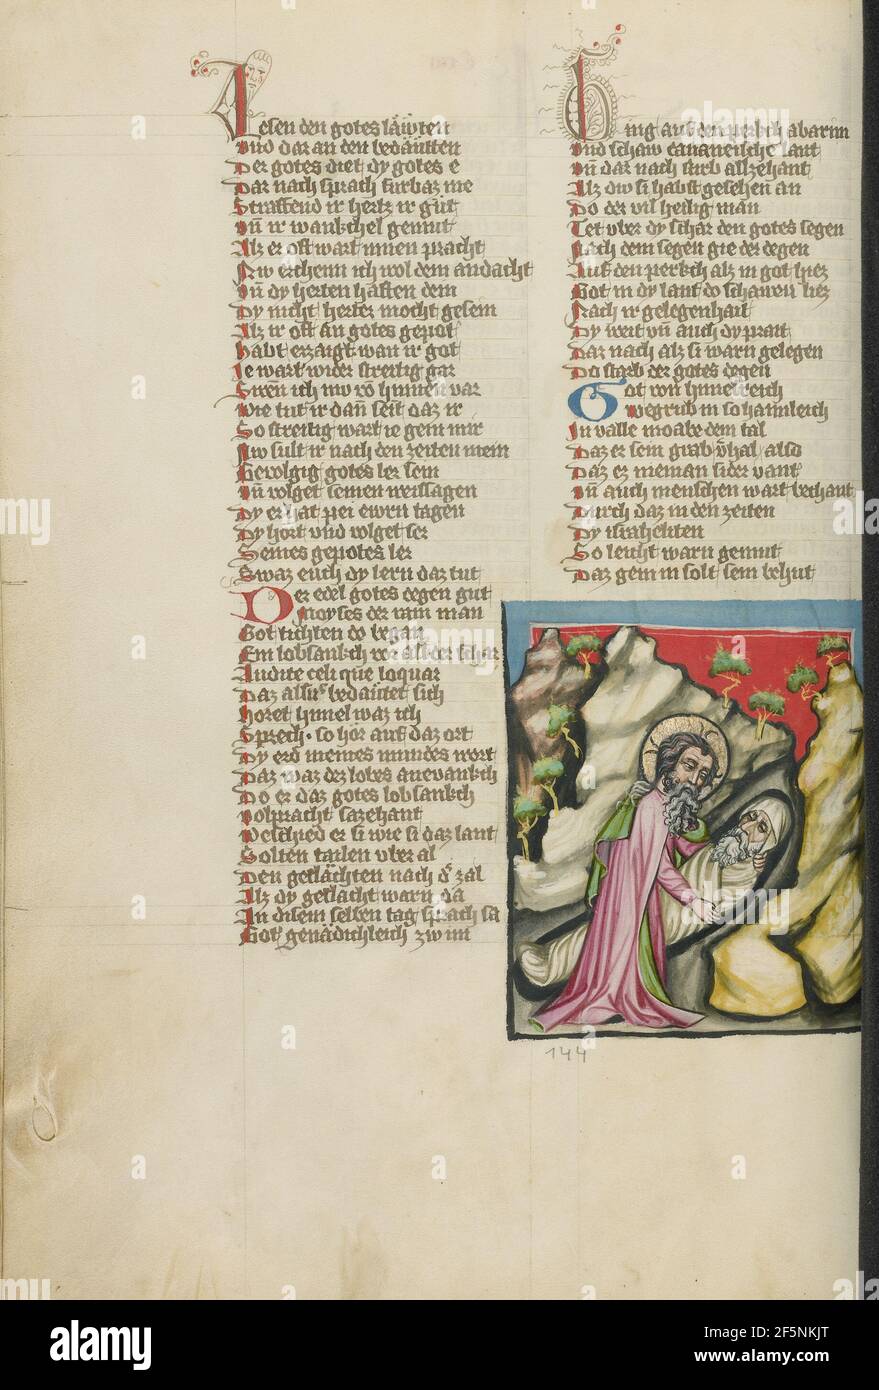 Lesen den gotes läwten
Vnd daz an den bedäutten
Der gotes diet dy gotes e
Dar nach sprach furbaz me
Straffend ir hertz ir gůt
Vn̄ ir wankchel gemut
Alz er oft wart innen pracht
Nw erchenn ich wol dem andacht
Vn̄ dy herten haften dem
Dy nicht herter mocht gesein
Alz ir oft an gotes gepot
Habt erzaigt wan ir got
Ie wart wider streitig gar
Swen̄ ich nw vō hinnen var
Wie tut ir dan̄ seit daz ir
So streitig wart ie gein mir
Nw sult ir nach den zeiten mein
Gevolgig gotes ler sein
Vn̄ volget seinen weissagen
Dy er hat pei ewrn tagen
Dy hort vnd volget ser
Seines gepotes ler
Swaz euch dy lern daz tut
Der edel gotes degen gut
Moyses der rain man
Got tichten do began
Ein lobsankch vor all der schar
Audite celi que loquar
Daz alsus bedäutet sich
Horet himel waz ich
Sprech · so hör auf daz ort
Dy erd meines mundes wort
Daz waz dez lobes anevankch
Do er daz gotes lobsankch
Volpracht sazehant
Weschied er si wie si daz lant
Solten tailen vber al
Den geslächten nach d' zal
Alz dy geslacht warn da
An disem selben tag sprach sa
Got genädichleich zw im
Ging auf den perkch abarim
Vnd schaw cananeische lant
Vn̄ dar nach stirb allzehant
Alz dw si habst gesehen an
Do der vil heilig man
Tet vber dy schar den gotes segen
Nach dem segen gie der degen
Auf den perkch alz in got hiez
Got in dy lant do schawen liez
Nach ir gelegenhait
Dy weit vn̄ auch dy prait
Dar nach alz si warn gelegen
Do starb der gotes degen
Got von himelreich
Wegrub in so hainleich
In valle moabe dem tal
Daz er sein grab v'hal also
Daz ez nieman sider vant
Vn̄ auch menschen wart bechant
Durch daz in den zeiten
Dy israheliten
So leicht warn gemut
Daz gein in solt sein behut
144
alamy
a
Image ID: 2F5NKJT
www.alamy.com